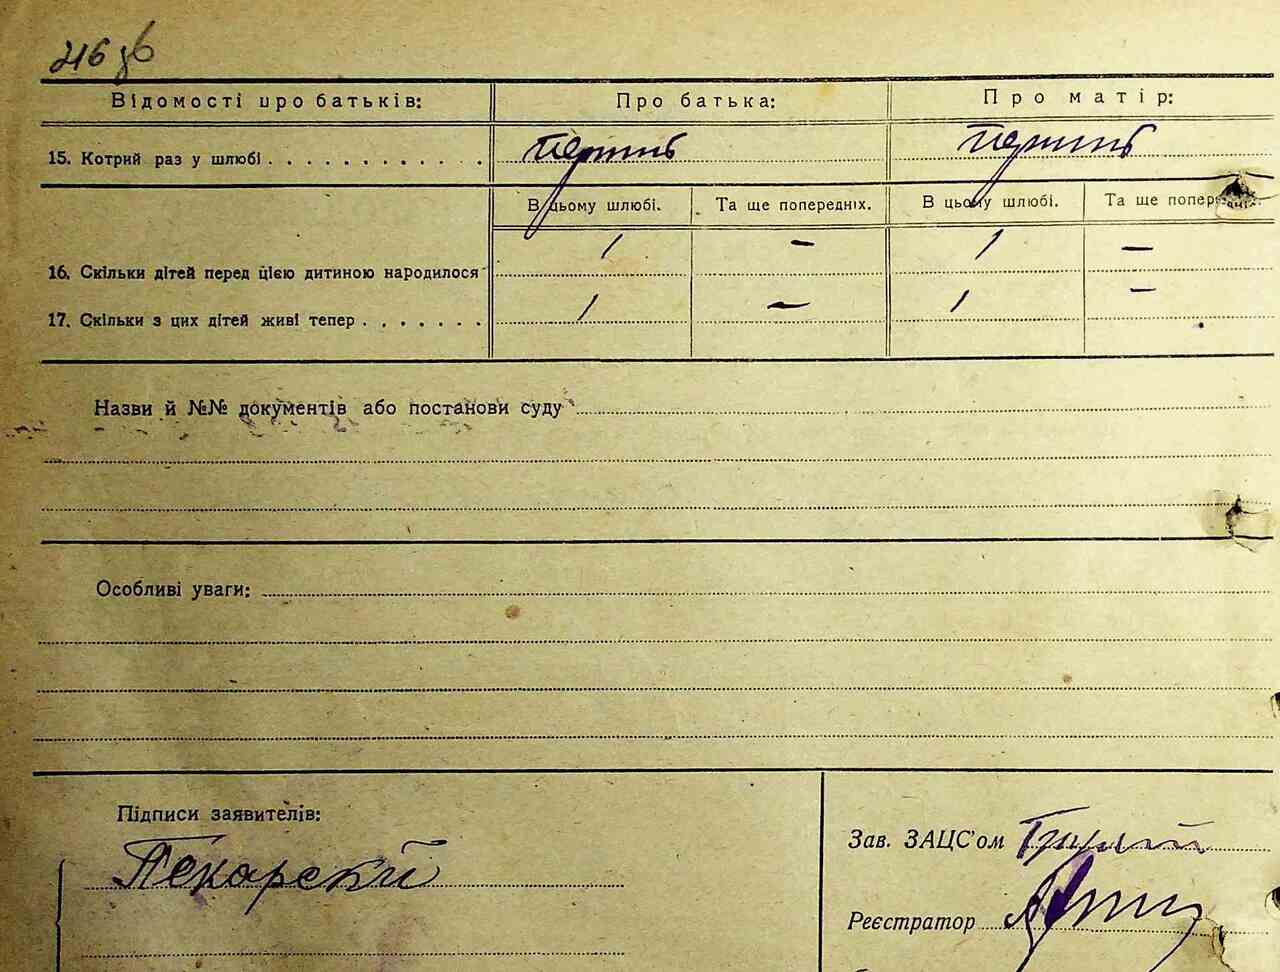 216 зв
Відомості про батьків: Про батька: Про матір:
15. Котрий раз у шлюбі . . . . . . . . . . . . перший перший
В цьому шлюбі. Та ще попередніх. В цьому шлюбі. Та ще попередніх.
16. Скільки дітей перед цією дитиною народилося 1 – 1 –
17. Скільки з цих дітей живі тепер . . . . . . . 1 – 1 –
Назви й №№ документів або постанови суду
Особливі уваги:
Підписи заявителів:
Пекарский
Зав. ЗАЦС'ом
Реєстратор